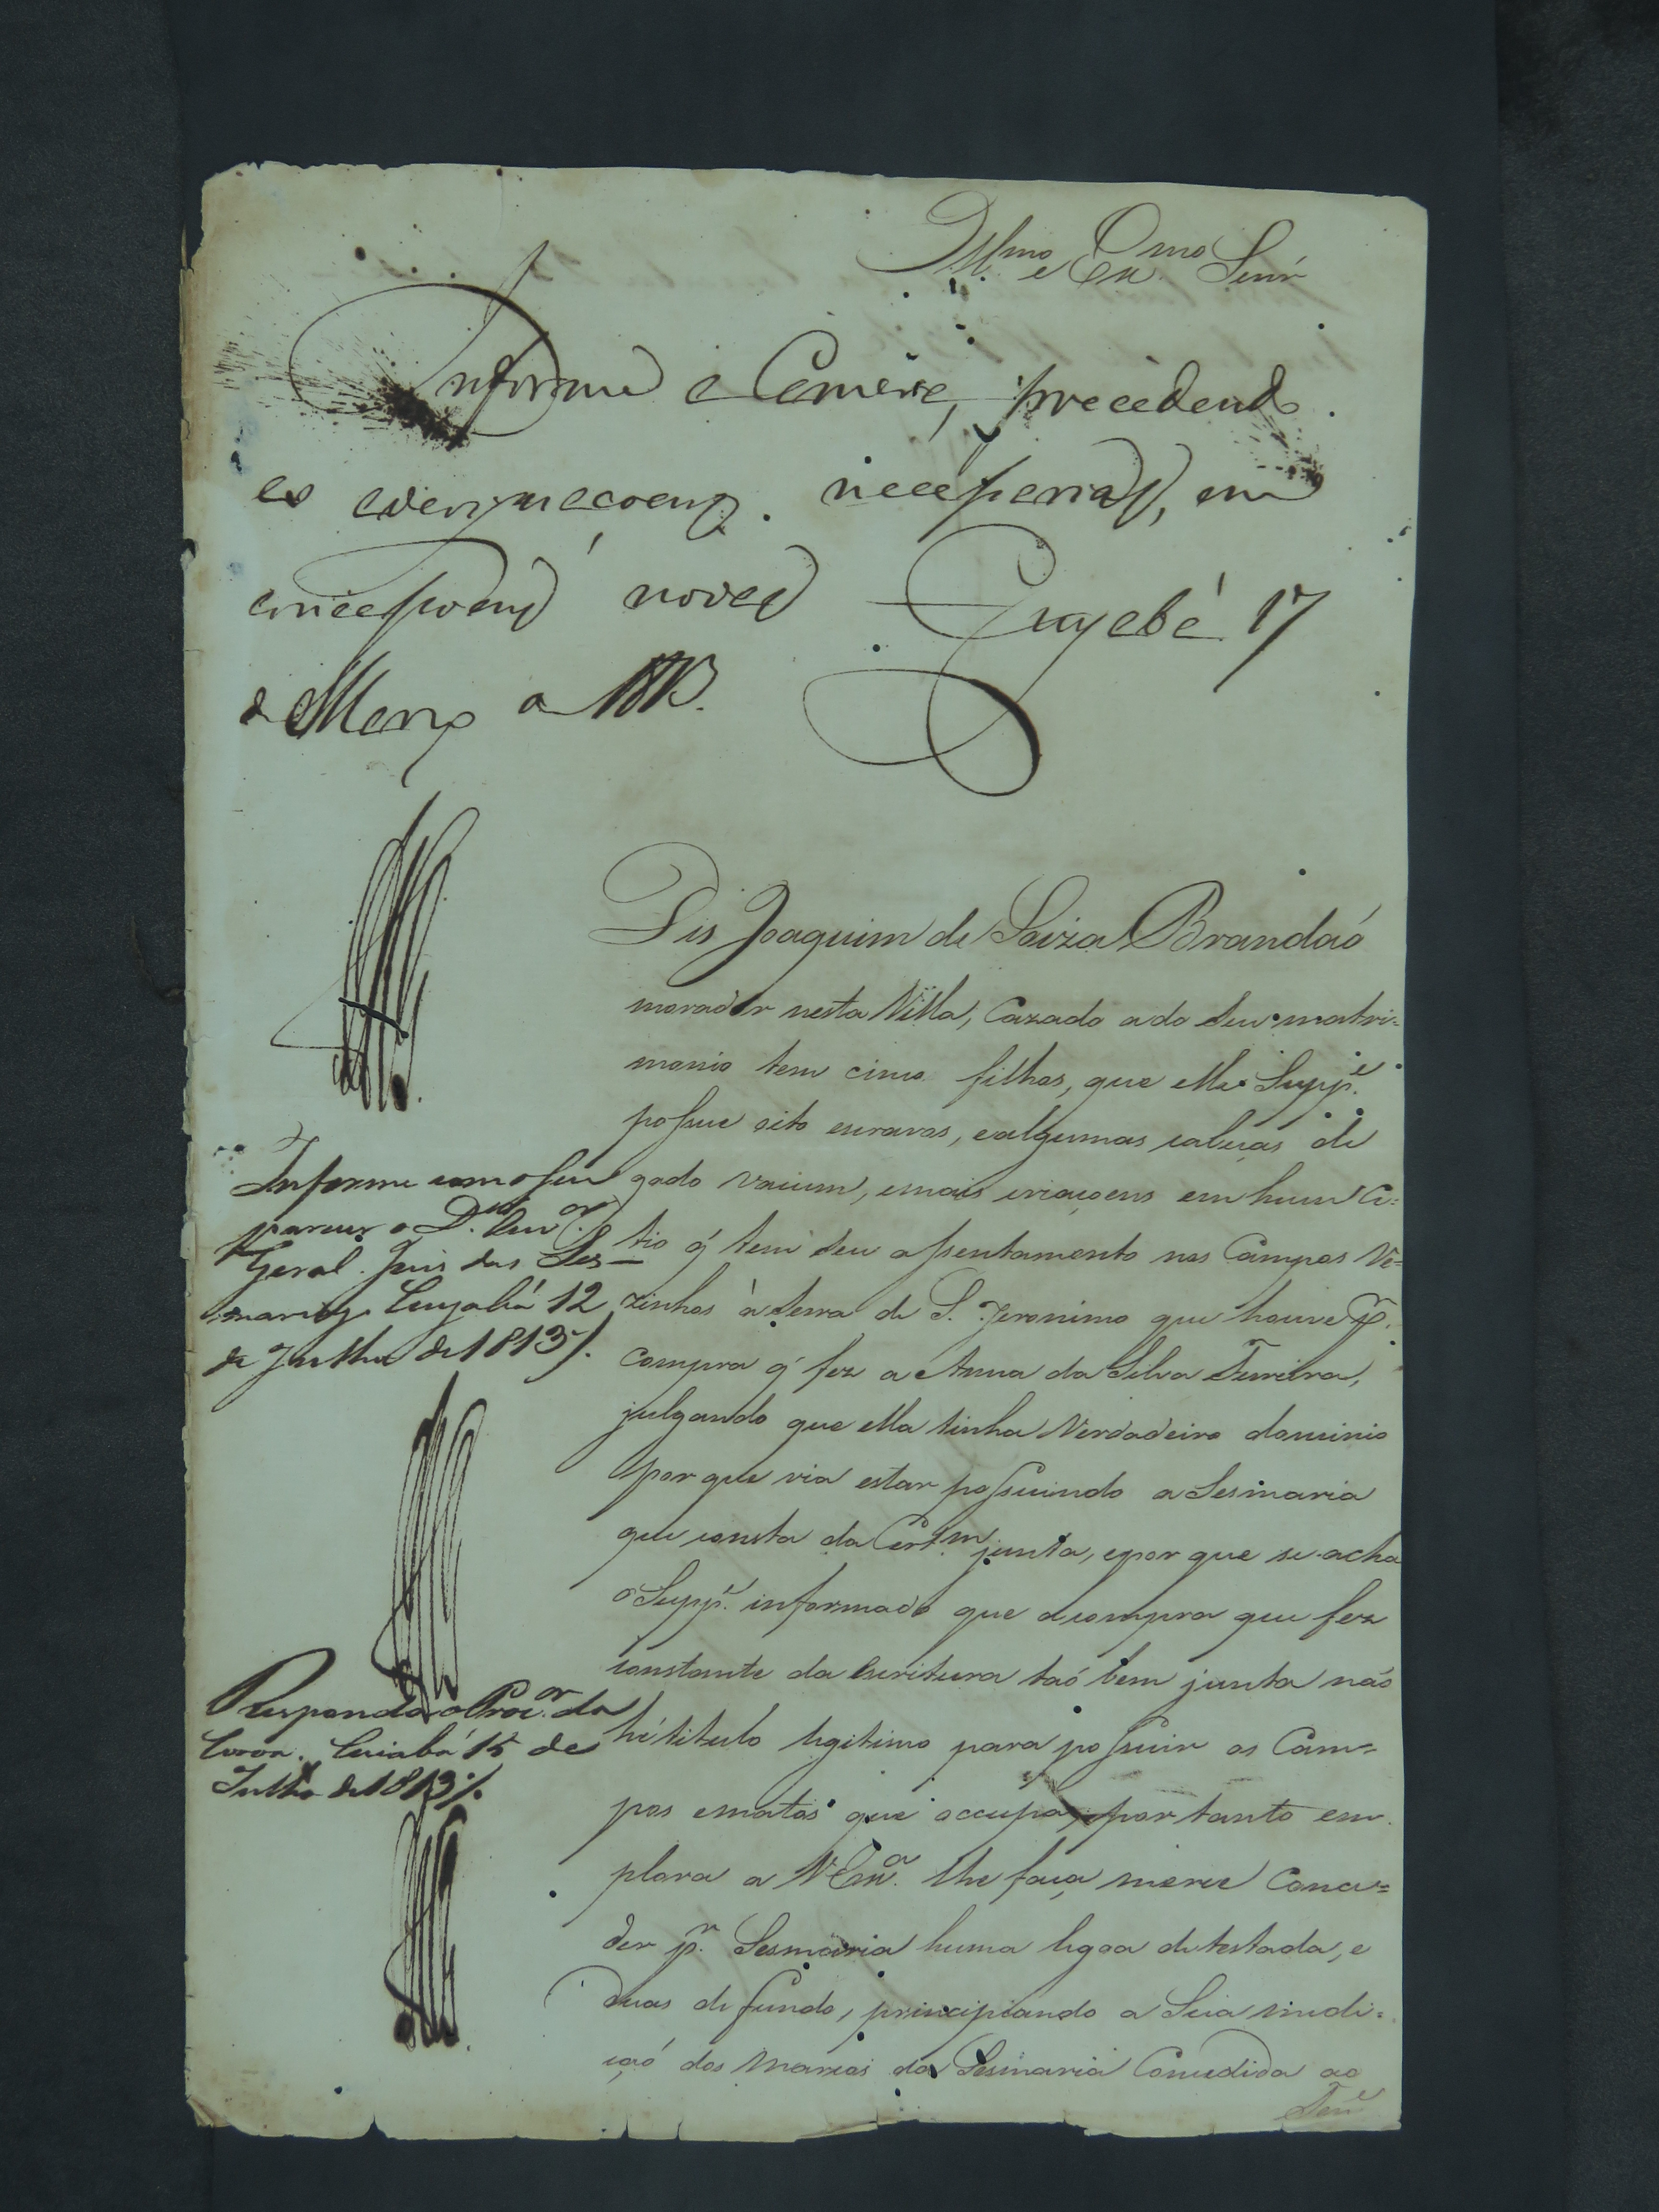 Illmo e Exmo Senr
Informe a Camera, precedend
as averiguacoens necessarias, em
nove Cuyabá 17
de Março de 1813.
Dis Joaquim de Soiza Brandaó
morador nesta Villa, Cazado e do seu matri=
monio tem cinco filhos, que elle Suppe.
possue oito escravos, e algumas cabeças de
gado vacum, e mais criaçoens em hum Ci=
tio q̃ tem seu assentamento nos Campos Ve=
zinhos à serra de S. Jeronimo que houve pr.
compra q̃ fez a Anna da Silva Ferreira,
julgando que ella tinha Verdadeiro dominio
por que via estar possuindo a Sesmaria
que consta da Certm. junta, e por que se acha
o Suppe. informado que a compra que fez
constante da Escritura taó bem junta naó
hé titulo legitimo para possuir os Cam=
pos e matos que occupa, por tanto em
plora a V Exa. lhe faça merce Conce=
der pr. Sesmaria huma legoa de testada, e
duas de fundo, principiando a Sua medi=
çaó dos Marcos da Sesmaria Concedida ao
Tene
Informe com o seu
parecer o Dr. Ouvor.
Geral Juis das Ses=
marias Cuyabá 12
de Julho de 1813/.
Responda o Procor. da
Coroa. Cuiabá 15 de
Julho de 1813/.